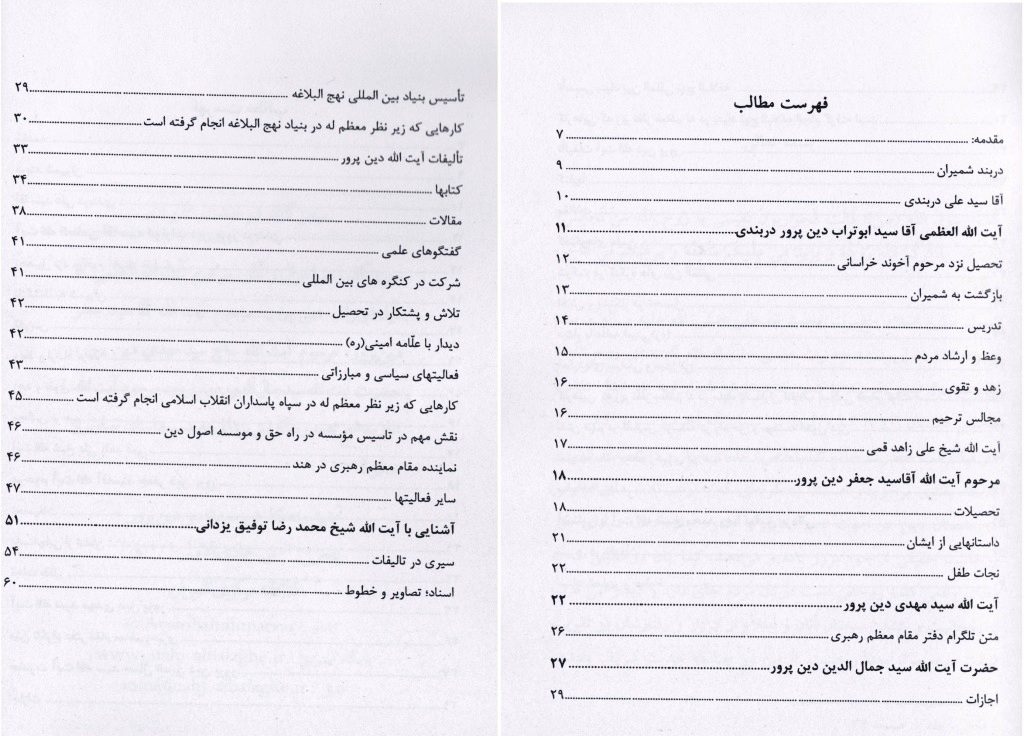 فهرست مطالب
مقدمه: ۷
دربند شمیران ۹
آقا سید علی دربندی ۱۰
آیت الله العظمی آقا سید ابوتراب دین پرور دربندی ۱۱
تحصیل نزد مرحوم آخوند خراسانی ۱۲
بازگشت به شمیران ۱۳
تدریس ۱۴
وعظ و ارشاد مردم ۱۵
زهد و تقوی ۱۶
مجالس ترحیم ۱۶
آیت الله شیخ علی زاهد قمی ۱۷
مرحوم آیت الله آقاسید جعفر دین پرور ۱۸
تحصیلات ۱۸
داستانهایی از ایشان ۲۱
نجات طفل ۲۲
آیت الله سید مهدی دین پرور ۲۲
متن تلگرام دفتر مقام معظم رهبری ۲۶
حضرت آیت الله سید جمال الدین دین پرور ۲۷
اجازات ۲۹
تأسیس بنیاد بین المللی نهج البلاغه ۲۹
کارهایی که زیر نظر معظم له در بنیاد نهج البلاغه انجام گرفته است ۳۰
تألیفات آیت الله دین پرور ۳۳
کتابها ۳۴
مقالات ۳۸
گفتگوهای علمی ۴۱
شرکت در کنگره های بین المللی ۴۱
تلاش و پشتکار در تحصیل ۴۲
دیدار با علّامه امینی(ره) ۴۲
فعالیتهای سیاسی و مبارزاتی ۴۳
کارهایی که زیر نظر معظم له در سپاه پاسداران انقلاب اسلامی انجام گرفته است ۴۵
نقش مهم در تاسیس مؤسسه در راه حق و موسسه اصول دین ۴۶
نماینده مقام معظم رهبری در هند ۴۶
سایر فعالیتها ۴۷
آشنایی با آیت الله شیخ محمد رضا توفیق یزدانی ۵۱
سیری در تالیفات ۵۴
اسناد؛ تصاویر و خطوط ۶۰